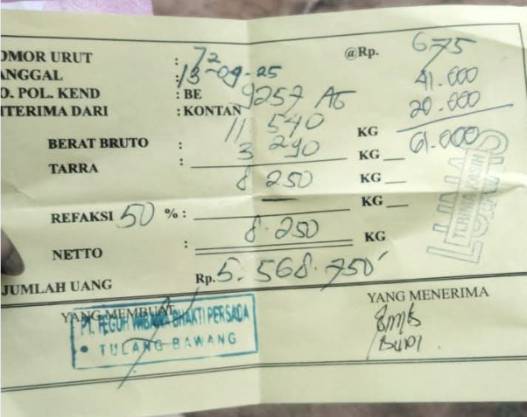 OMOR URUT : 72 @Rp. 675
ANGGAL : 13-09-25 41.000
O. POL. KEND : BE 9257 AG 20.000
ITERIMA DARI : KONTAN 61.000
BERAT BRUTO : 11 540 KG
TARRA : 3 290 KG
8 250 KG
KG
REFAKSI 50 % : —
NETTO : 8.250 KG
JUMLAH UANG Rp. 5.568.750
YANG MEMBUAT YANG MENERIMA
PT. TEGUH WIBAWA BHAKTI PERSADA
TULANG BAWANG